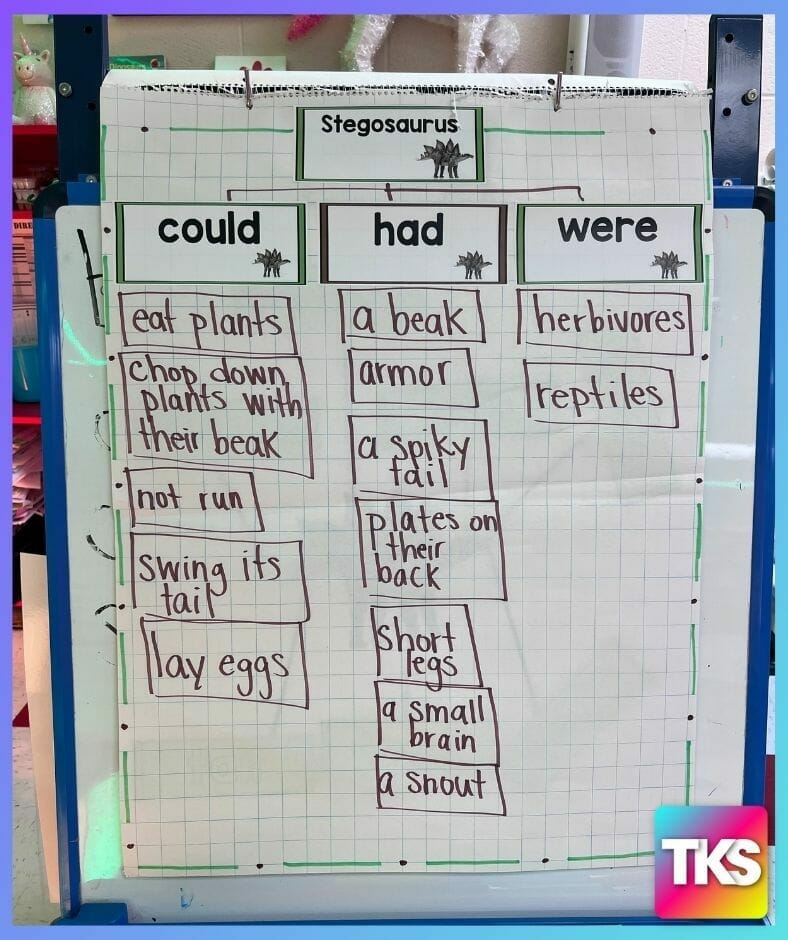 Stegosaurus
could
had
were
eat plants
chop down
plants with
their beak
not run
swing its
tail
lay eggs
a beak
armor
a spiky
tail
plates on
their
back
short
legs
a small
brain
a snout
herbivores
reptiles
TKS